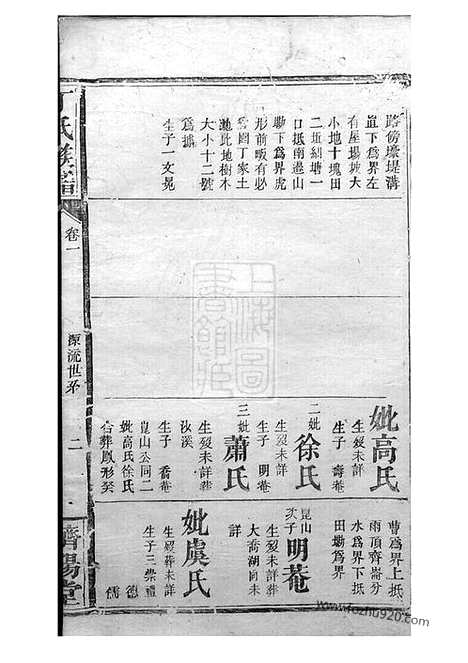 路傍壕堤溝
直下為界左
有屋場坡大
小地十塊田
二坵糾塘一
口抵南邊山
墈下為界虎
形前畈有必
丁家土
地此地樹木
大小十二號
為據
生子一文晃
妣高氏
生歿未詳
生子 壽菴
二妣徐氏
生歿未詳
生子 明菴
三妣蕭氏
生歿未詳葬
汝溪
生子 喬菴
崑山公同二
妣高氏徐氏
合葬鳳形癸
曹為界上抵
兩頂齊崙分
水為界下抵
田墈為界
崑山次子明菴
生歿未詳葬
大喬湖向未
詳
妣虞氏
生歿葬未詳
生子三崇禮
德
儒
丁氏族譜
卷一
源流世系
二
濟陽堂
上海圖書館藏
www.fozhu920.com